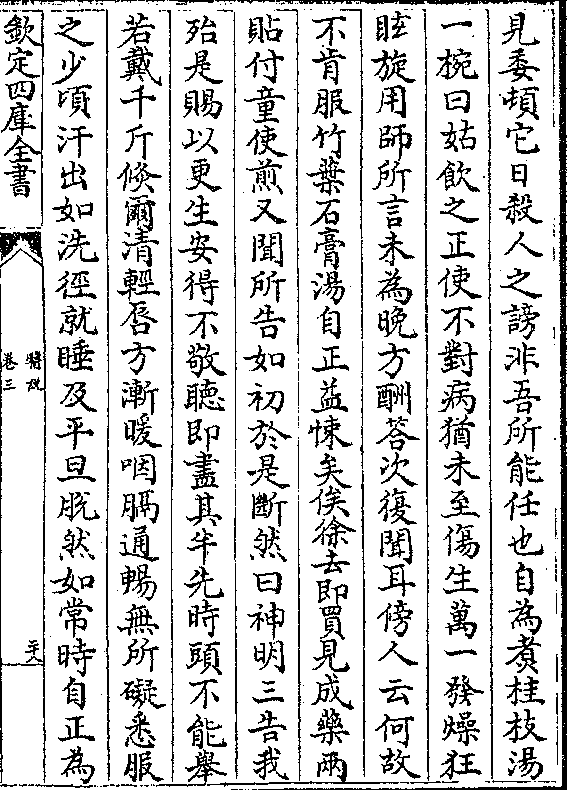 見委頓它日殺人之謗非吾所能任也自為煮桂枝湯
一椀曰姑飲之正使不對病猶未至傷生萬一發燥狂
眩旋用師所言未為晚方酬答次復聞耳傍人云何故
不肯服竹葉石膏湯自正益悚矣俟徐去即買見成藥兩
貼付童使煎又聞所告如初於是斷然曰神明三告我
殆是賜以更生安得不敬聽即盡其半先時頭不能舉
若戴千斤倏爾清輕唇方漸暖咽膈通暢無所礙悉服
之少頃汗出如洗徑就睡及平旦脱然如常時自正為
欽定四庫全書
醫説
卷三
二十八